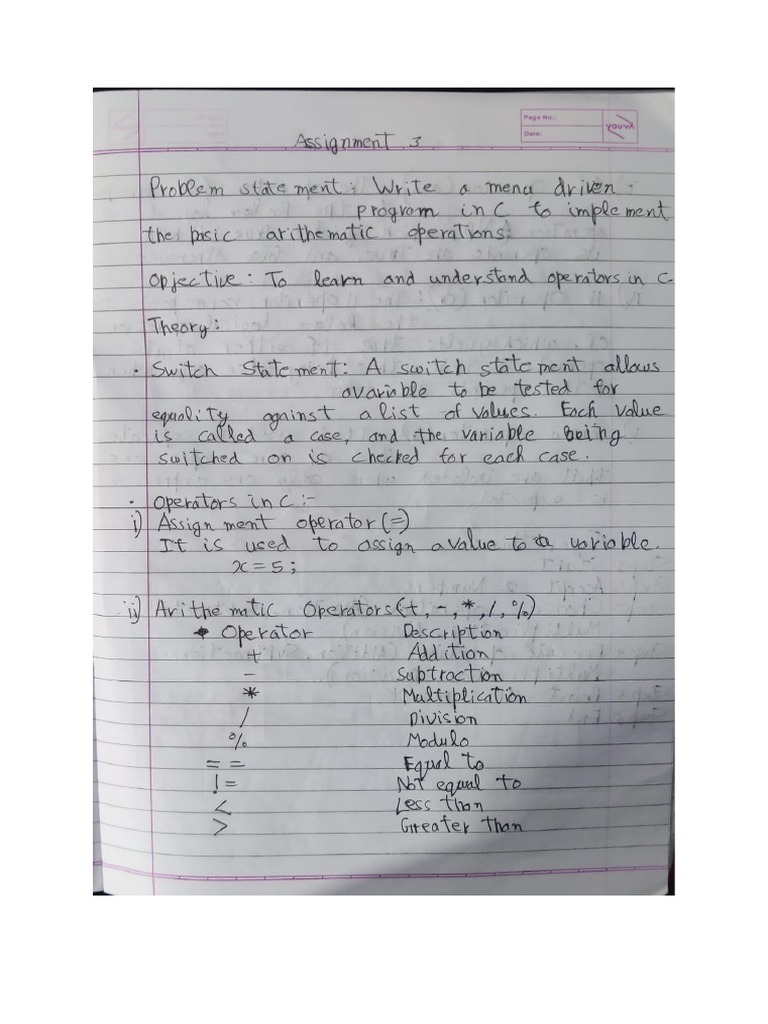 Page No.:
Date:
YOUVA
Assignment 3
Problem statement: Write a menu driven
program in C to implement
the basic arithematic operations.
Opjective: To learn and understand operators in C
Theory:
• Switch Statement: A switch statement allows
a variable to be tested for
equality against a list of values. Each value
is called a case, and the variable being
switched on is checked for each case.
• Operators in C :-
i) Assignment operator (=)
It is used to assign a value to a variable.
x = 5;
ii) Arithematic Operators (+, -, *, /, %)
Operator Description
+ Addition
- Subtraction
* Multiplication
/ Division
% Modulo
== Equal to
!= Not equal to
< Less than
> Greater than